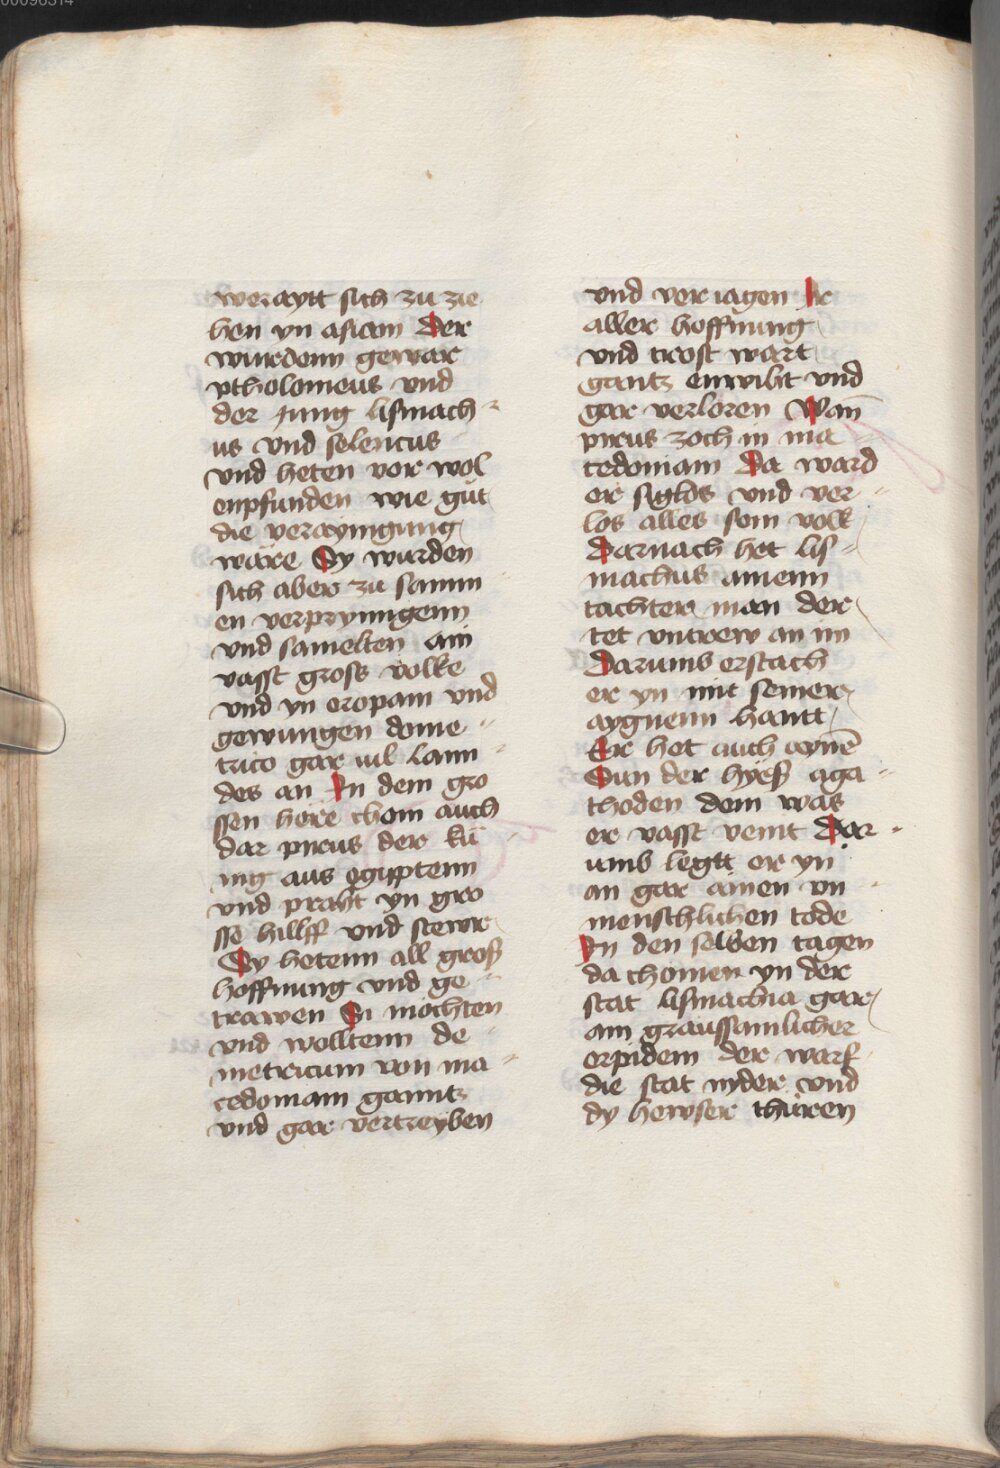 00098314
weraytt sich zu zie
hen yn asiam Der
wurdenn gewar
ptholomeus vnd
der jung lismach-
us vnd selencus
vnd heten vor wol
enpfunden wie gut
die veraynigung
wäre Sy wurden
sich aber zu samm
en verprynngenn
vnd samelten ain
vasst gross volke
vnd yn eropam vnd
gewungen deme-
trico gar vil lann
des an In dem gro
ssen höre chom auch
dar pirus der kü
nig aus egiptenn
vnd praht yn gro
sse hillff vnd stewr
Sy hetenn all groß
hoffnung vnd ge-
trawen Si möchten
vnd wolltenn de-
metricum von ma-
cedoniam ganntz
vnd gar vertreyben
vnd ver iagen Ir
aller hoffnung
vnd trost wart
gantz enwiht vnd
gar verloren Wan̄
pirus zoch in ma-
cedoniam Da ward
er siglos vnd ver-
los alles sein volk
Darnach het lis-
machus ainenn
tachter man der
tet vntrew an im
Darumb erstach
er yn mit seiner
aygnenn hantt
Er het auch aynē
Sun der hyeß aga-
thoden dem was
er vasst veint Dar-
umb legtt er yn
an gar ainen vn-
menschlichen tode
In den selben tagen
da chomen yn der
stat lismachia gar
ain graussamlicher
erpidem der warf
die stat nyder vnd
dy hewser thüren